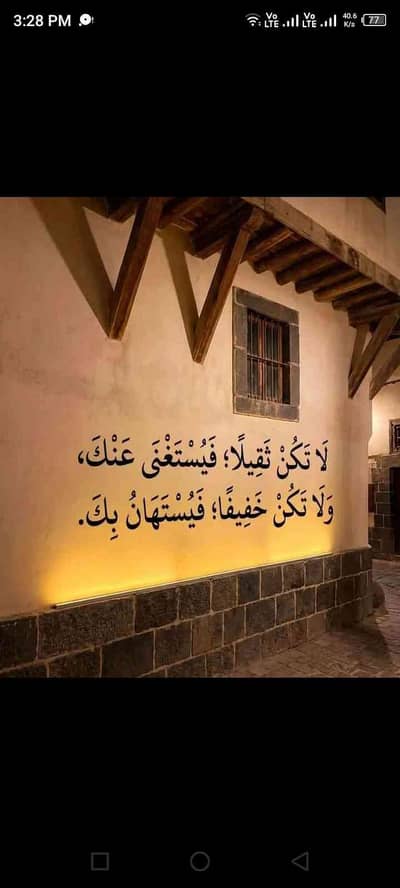 3:28 PM
Vo LTE Vo LTE 40.6 K/s 77
لَا تَكُنْ ثَقِيلًا؛ فَيُسْتَغْنَى عَنْكَ،
وَلَا تَكُنْ خَفِيفًا؛ فَيُسْتَهَانُ بِكَ.